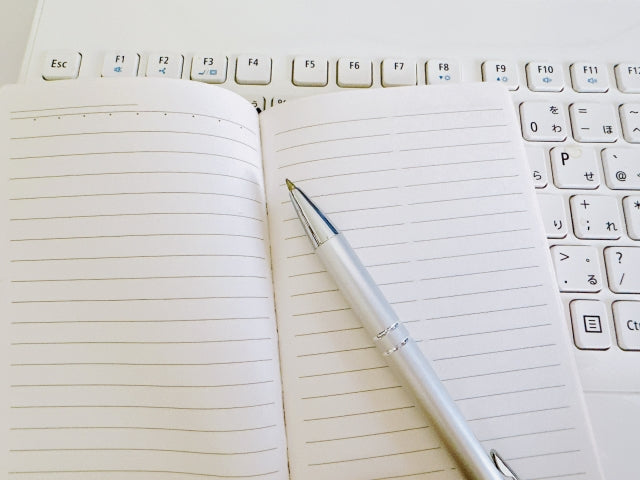 Esc F1 F2 F3 F4 F5 F6 F7 F8 F9 F10 F11 F12
を
0 わ
= ー
- ほ
ら P せ ` @
り + ; れ *
> 。 ?
. る /
Ct